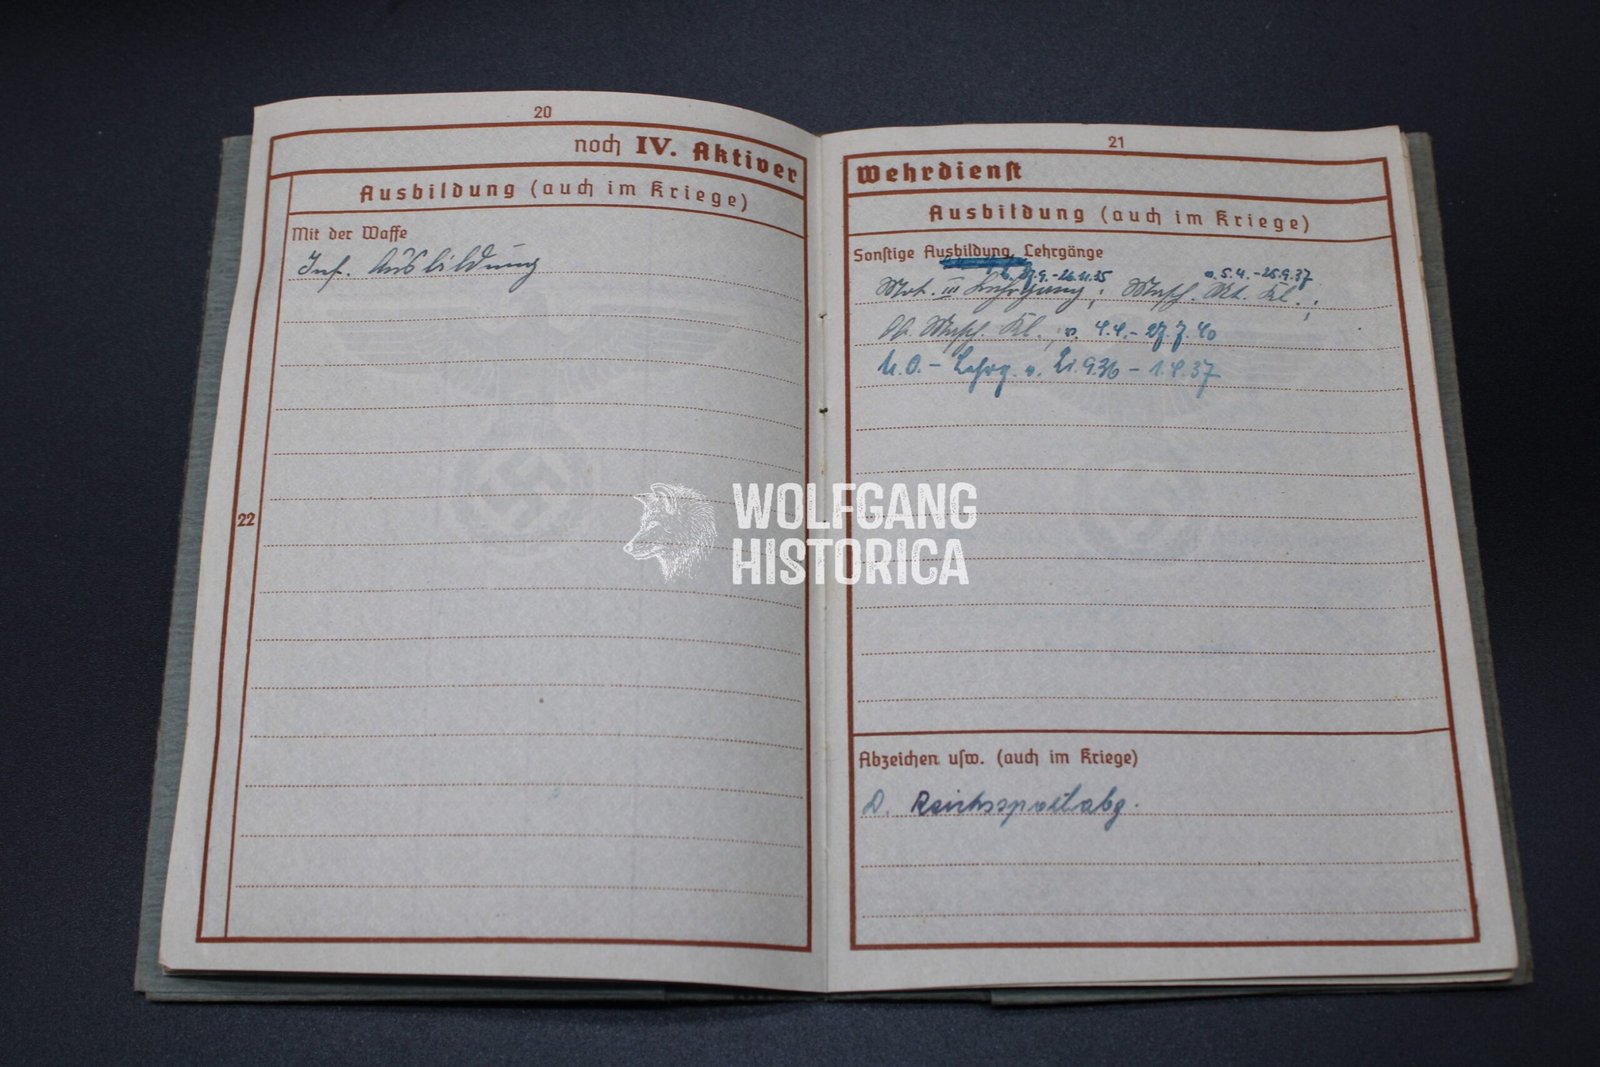 20
noch IV. Aktiver
Ausbildung (auch im Kriege)
Mit der Waffe
Inf. Ausbildung
22
21
Wehrdienst
Ausbildung (auch im Kriege)
Sonstige Ausbildung, Lehrgänge
27.9.-26.11.35 v. 5.4.-25.9.37
Mot. III Lehrgang; Masch. Kl.;
Masch. Kl., v. 4.4.-27.7.40
U.O.- Lehrg. v. 9.36 - 1.4.37
Abzeichen usw. (auch im Kriege)
D. Reichssportabz.
WOLFGANG
HISTORICA